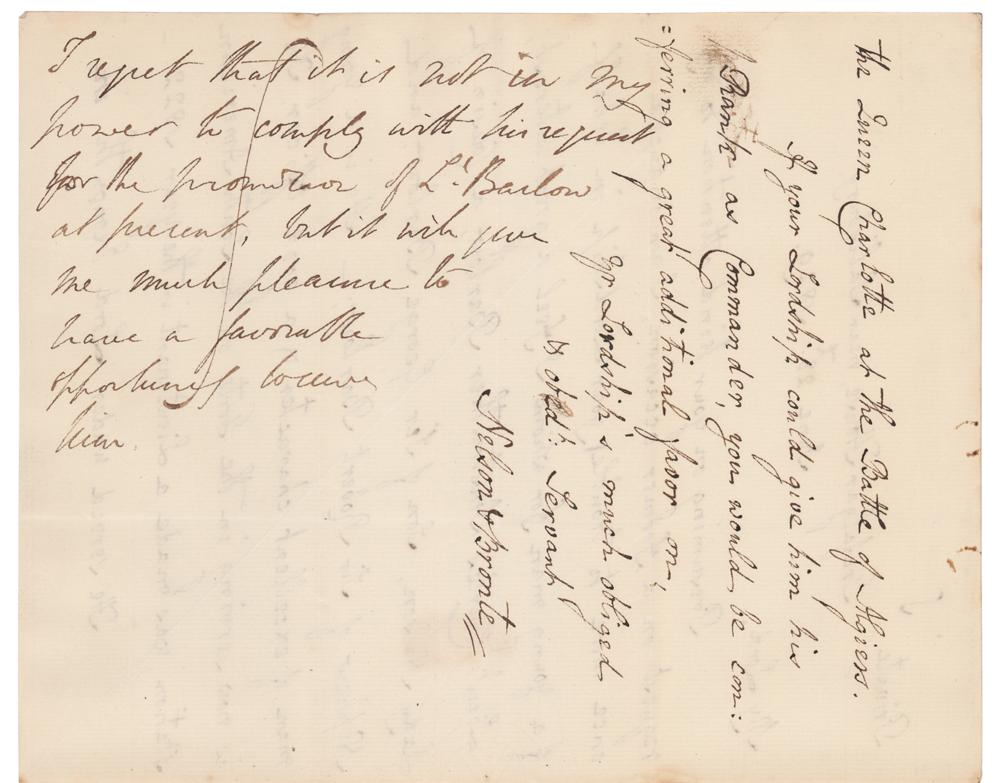 the Queen Charlotte at the Battle of Algiers.
If your Lordship could give him his
Rank as Commander, you would be con:
:ferring a great additional favor on
Yr Lordship's much obliged
& obedt: Servant
Nelson & Bronte
I regret that it is not in my
power to comply with his request
for the promotion of Lt. Barlow
at present, but it will give
me much pleasure to
have a favorable
opportunity to serve
him.